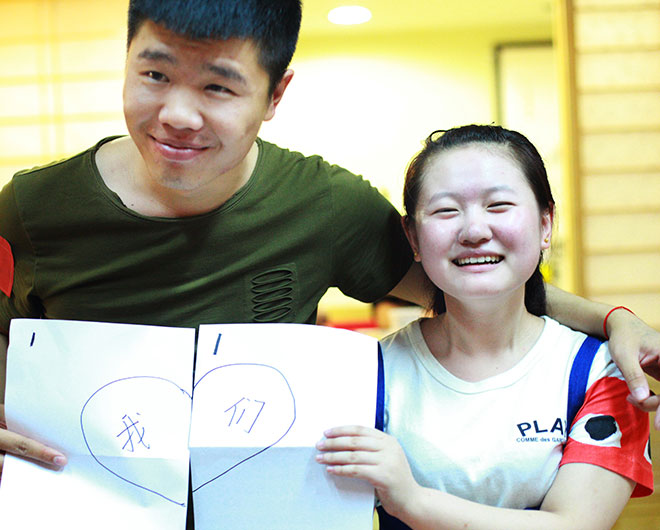 1 1
我们
PLA
COMME des GAR